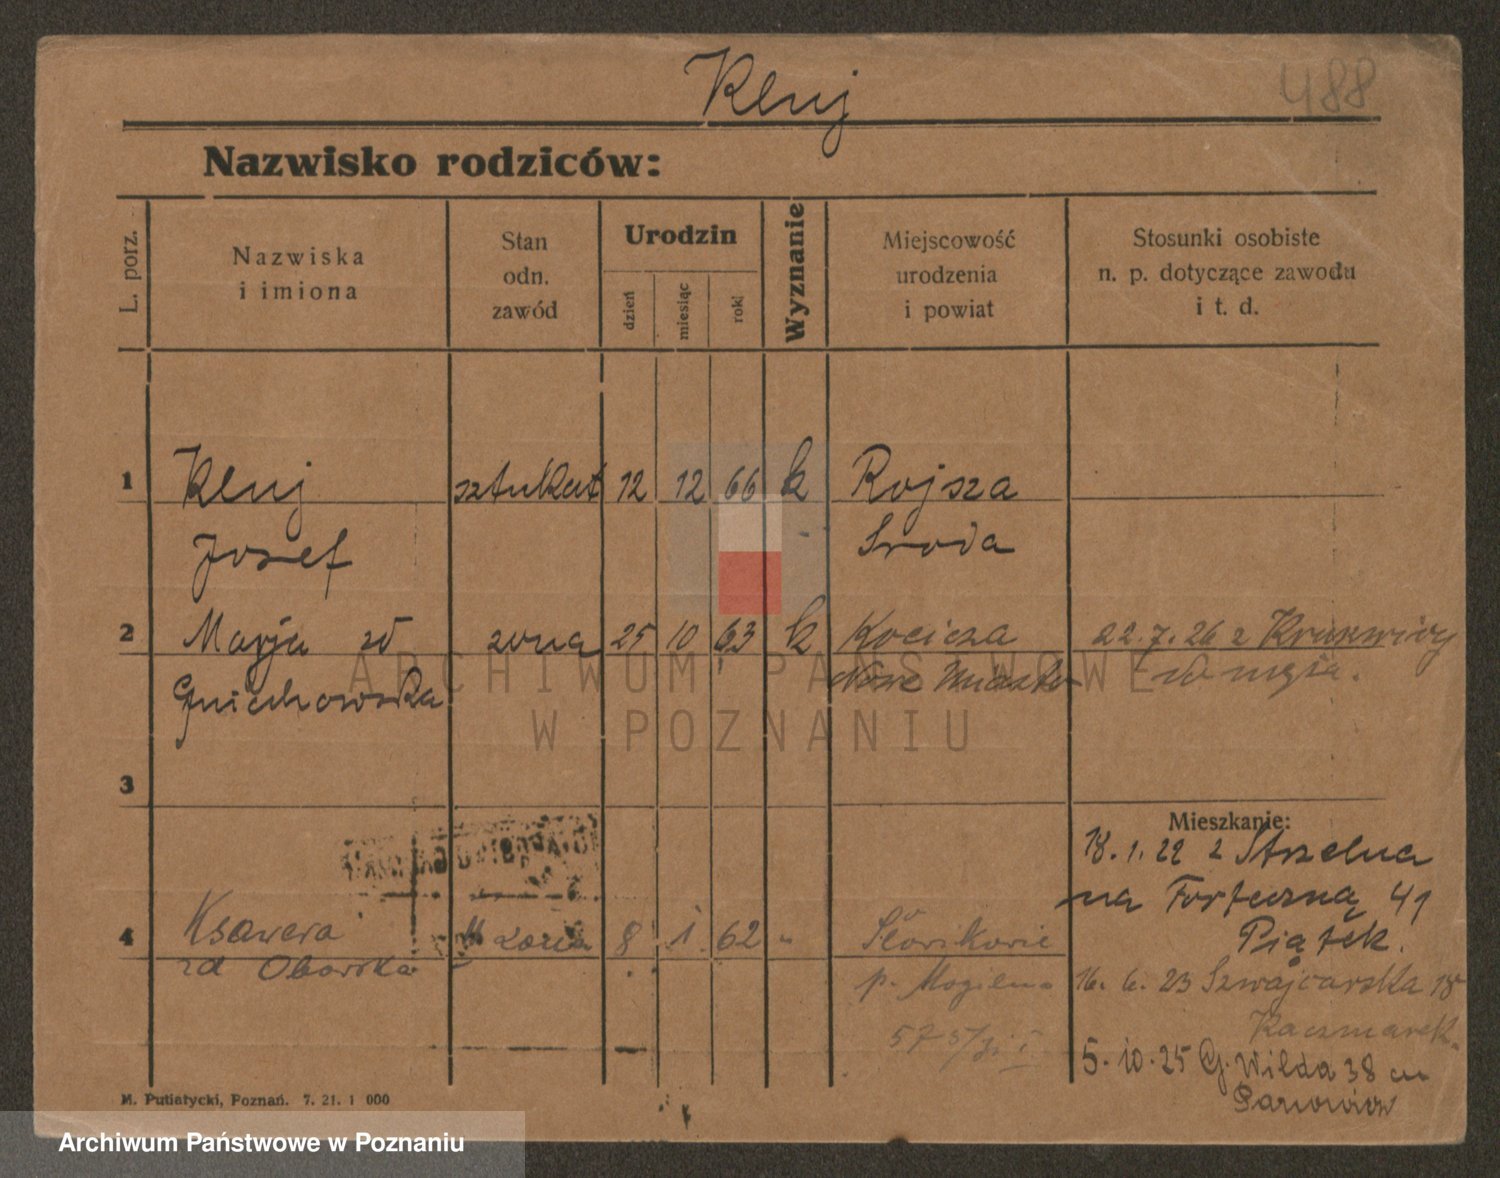 Kluj
488
Nazwisko rodziców:
L. porz.
Nazwiska
i imiona
Stan
odn.
zawód
Urodzin
dzień
miesiąc
rok
Wyznanie
Miejscowość
urodzenia
i powiat
Stosunki osobiste
n. p. dotyczące zawodu
i t. d.
1 Kluj sztukat 12 12 66 k Rojsza
Josef Sroda
2 Marja zd żona 25 10 63 k Kocicza 22.7.26 z Kruszwicy
Gniechowska Nowe Miasto do męża.
ARCHIWUM PAŃSTWOWE
W POZNANIU
3
Mieszkanie:
18.1.22 z Strzelna
na Forteczną 41
Piątek.
4 Ksawera II żona 8 1 62 "
zd Oborska p. Mogilno
16.6.23 Szwajcarska 18
Kaczmarek.
5.10.25 G. Wilda 38
M. Putiatycki, Poznań. 7. 21. 1 000
Archiwum Państwowe w Poznaniu